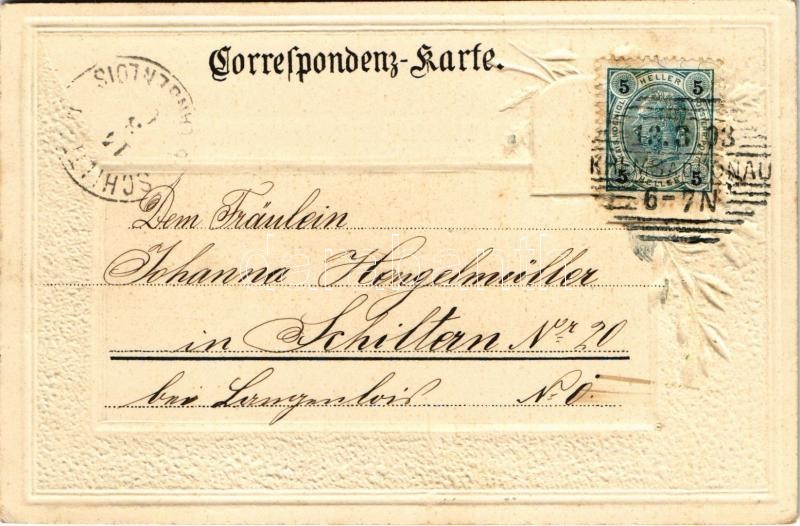 Correspondenz-Karte.
5 HELLER 5
13.3.03
5 HELLER 5
6-7N
LANGENLOIS
SCHILTERN
Dem Fräulein
Johanna Hengelmüller
in Schiltern Nr 20
bei Langenlois N. Ö.
darabanth